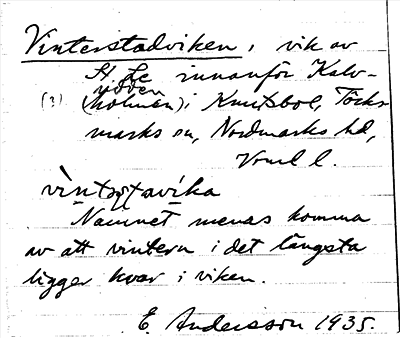 Vinterstadviken, vik av
St. Le innanför Kalv-
udden
(?) (holmen) i Knutsbol, Töcks
marks sn, Nordmarks hd,
Vrml l.
Namnet menas komma
av att vintern i det längsta
ligger kvar i viken.
E. Andersson 1935.